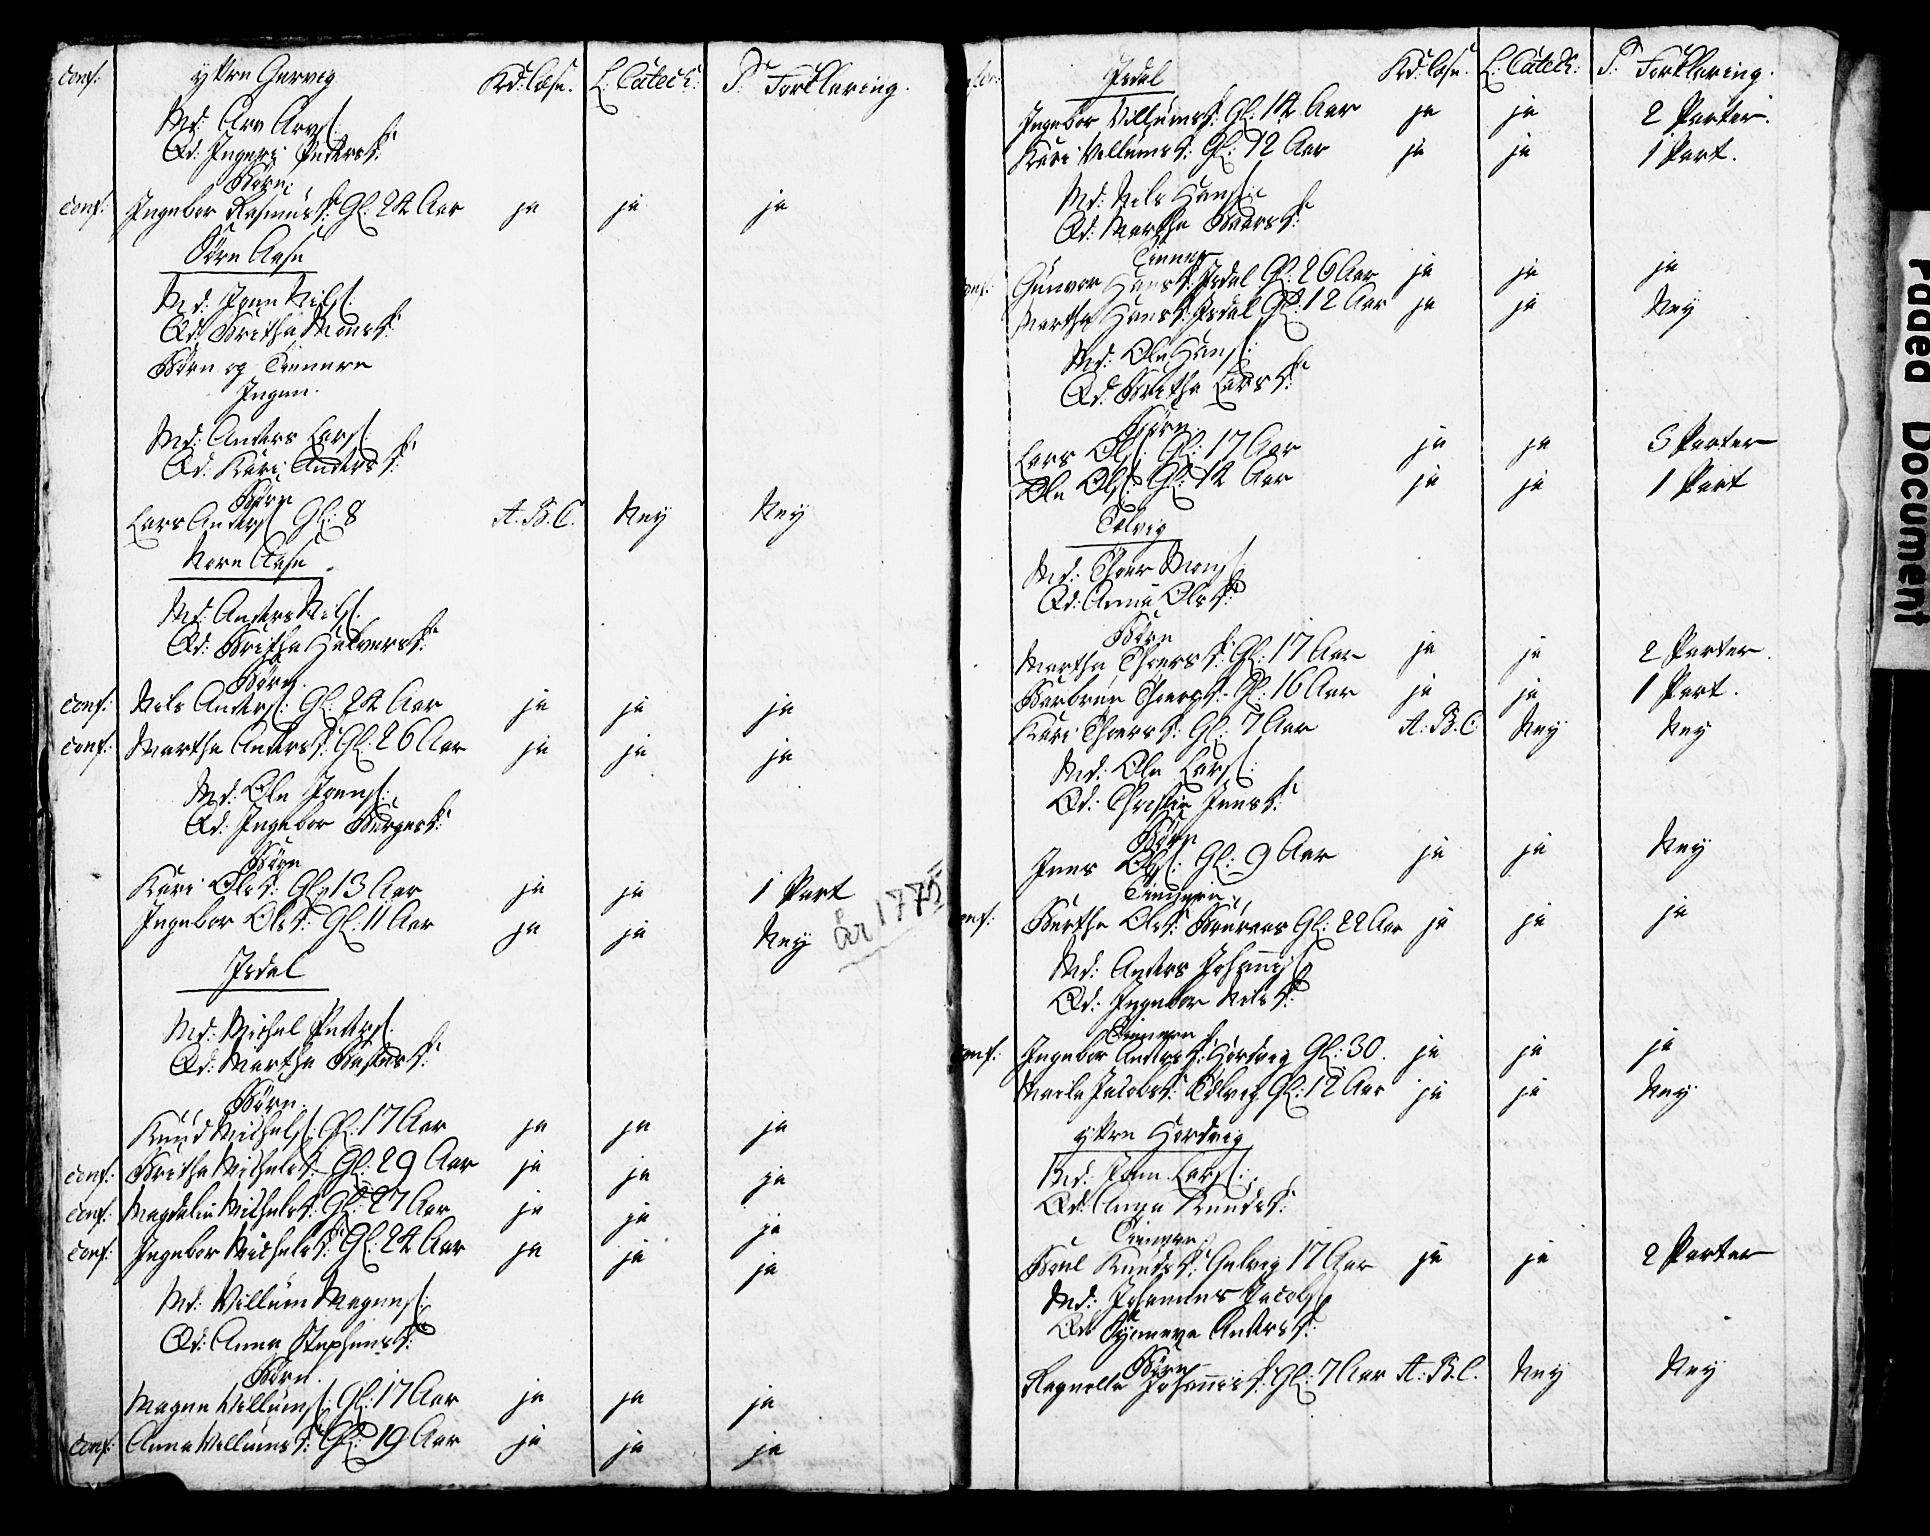 conf: yttre Gervig Kd: læse. L: Catech: P: Forklaring.
Md: Arn Arns:
Qd: Ingeri Peders D:
Børn:
conf: Ingebor Rasmus D: Gl: 24 Aar ja ja ja
Børn Aase
Md: Joen Nils:
Qd: Britha Mons D:
Børn og Tiennere
Ingen.
Md: Anders Lars:
Qd: Kari Anders D:
Børn
Lars Anders: Gl: 8 A. B. C. Ney Ney
Norn Aase
Md: Anders Nils:
Qd: Britha Halvers D:
Børn.
conf: Nils Anders: Gl: 24 Aar ja ja ja
conf: Martha Anders D: Gl: 26 Aar ja ja ja
Md: Ole Joens:
Qd: Ingebor Børges D:
Børn
Kari Ols D: Gl: 13 Aar ja ja 1 Part
Ingebor Ols D: Gl: 11 Aar ja ja Ney
år 1775
Isdal
Md: Michel Peders:
Qd: Martha D:
Børn.
Knud Michels: Gl: 17 Aar ja ja ja
conf: Britha Michels D: Gl: 29 Aar ja ja ja
conf: Magdeli Michels D: Gl: 27 Aar ja ja ja
conf: Ingebor Michels D: Gl: 24 Aar ja ja ja
Md: Villum Magnes:
Qd: Anna Stephens D:
Børn.
Magne Villums: Gl: 17 Aar ja ja ja
conf: Anna Villums D: Gl: 19 Aar ja ja ja
Isdal Kd: læse. L: Catech: P: Forklaring.
Ingebor Villums D: Gl: 14 Aar ja ja 2 Parter.
Kari Villums D: Gl: 12 Aar ja ja 1 Part.
Md: Nils Hans:
Qd: Martha D:
Tienner
conf: Gunvor Hans D: Isdal Gl: 26 Aar ja ja ja
Martha Hans D: Isdal Gl: 12 Aar ja ja Ney
Md: Ole Hans:
Qd: Britha Lars D:
Børn.
Lars Ols: Gl: 17 Aar ja ja 5 Parter
Ole Ols: Gl: 14 Aar ja ja 1 Part
Tolvig
Md: Thoer Mons:
Qd: Anna Ols D:
Børn
Martha Thoers D: Gl: 17 Aar ja ja 2 Parter.
Barbrue Thoers D: Gl: 16 Aar ja ja 1 Part.
Kari Thoers D: Gl: 7 Aar A: B. C Ney Ney
Md: Ole Lars:
Qd: Christie Jens D:
Børn
Jens Ols: Gl: 9 Aar ja ja Ney
Tienneri
conf: Berthe Ols D: Gl: 22 Aar ja ja ja
Md: Anders Johannis:
Qd: Ingebor Nils D:
Tiennere
conf: Ingebor Anders D: Hordvig Gl: 30. ja ja ja
Marile Jacobs D: Tolvig Gl: 12 Aar ja ja Ney
yttre Hordvig
Md: Joen Lars:
Qd: Anna Knuds D:
Tiennere
Knuds D: Gelvig 17 Aar ja ja 2 Parter
Md: Johannes Jacobs:
Qd: Synneva Anders D:
Børn
Ragnelle Johannis D: Gl: 7 Aar A: B. C. Ney Ney
Paged Document